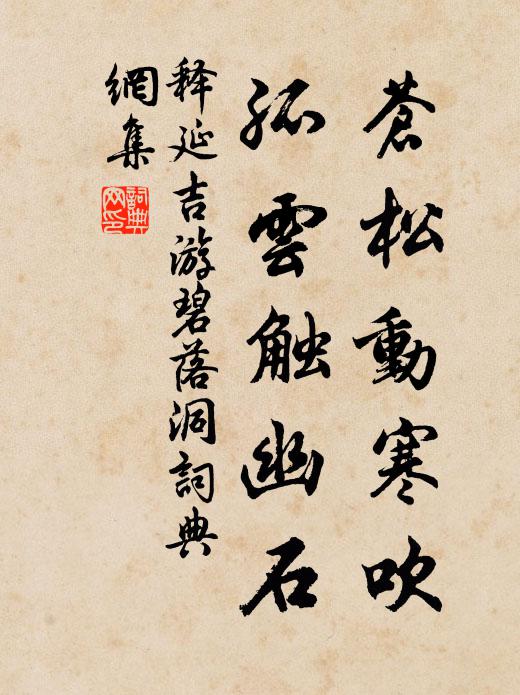 蒼松動寒吹
孤雲触幽石
释延吉游碧落洞詞典
網集
詞典
网印